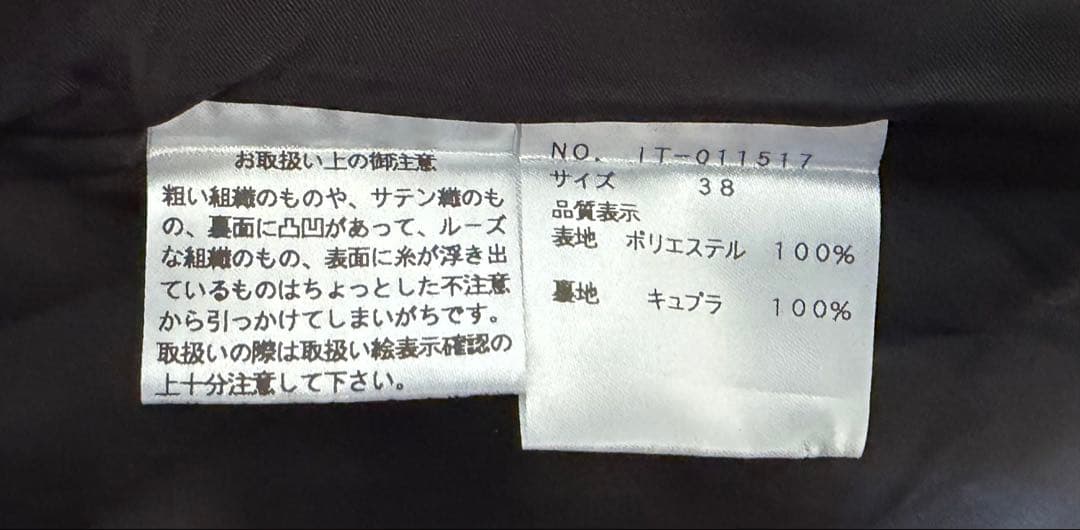 お取扱い上の御注意
粗い組織のものや、サテン織のも
の、裏面に凸凹があって、ルーズ
な組織のもの、表面に糸が浮き出
ているものはちょっとした不注意
から引っかけてしまいがちです。
取扱いの際は取扱い絵表示確認の
上十分注意して下さい。
NO. IT-011517
サイズ 38
品質表示
表地 ポリエステル 100%
裏地 キュプラ 100%